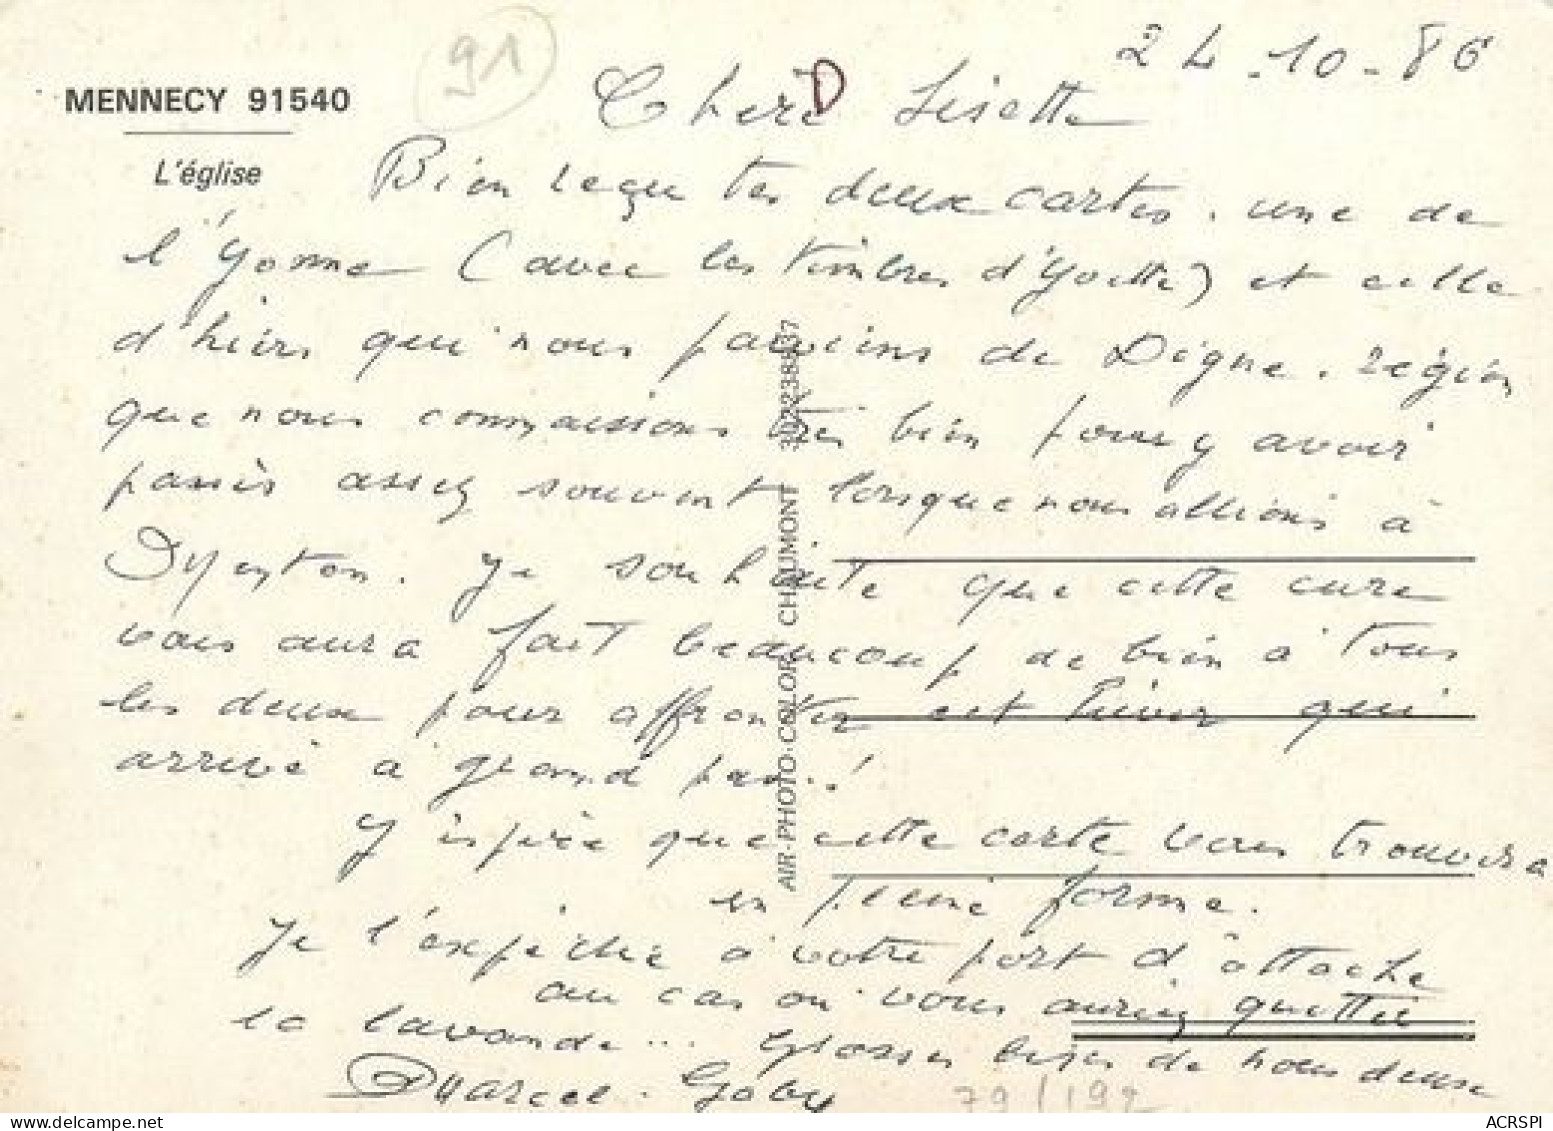 24-10-86
91
MENNECY 91540
L'église
Chère D Lisette
Bien reçu tes deux cartes. une de
l'Yonne (avec les timbres d'Yvette) et celle
d'hiers qui nous parviens de Digne. région
que nous connaissons très bien pour y avoir
passés assez souvent lorsque nous allions à
Menton. Je souhaite que cette cure
vous aura fait beaucoup de bien à tous
les deux pour affronter cet hiver qui
arrivé à grand pas.!
J'espère que cette carte vous trouvera
en pleine forme.
Je l'expédie à votre port d'attache
au cas où vous auriez quitté
la lavande... Grosses bises de nous deux
Marcel. Gaby
79/192
AIR-PHOTO-COLOR CHAUMONT
ACRSPI